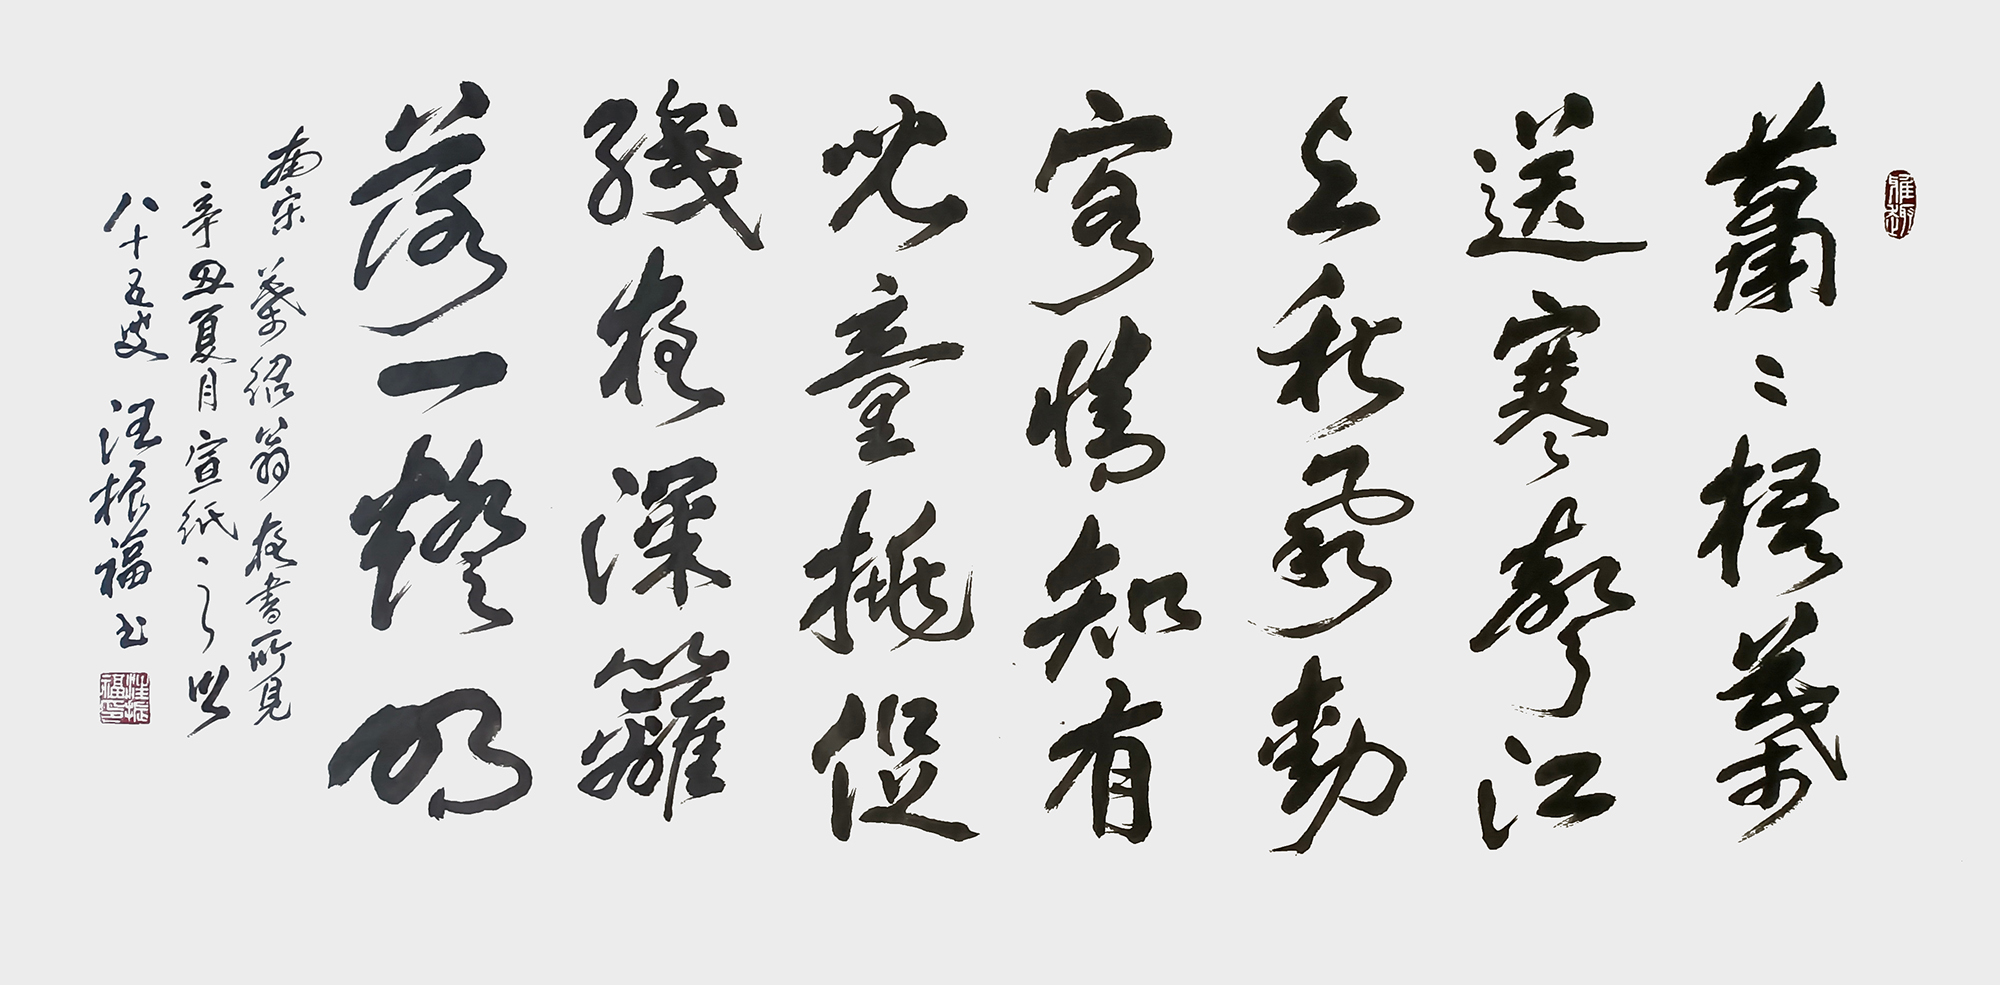 雅趣
蕭〻梧葉
送寒聲江
上秋風動
客情知有
兒童挑促
織夜深籬
落一燈明
南宋葉紹翁夜書所見
辛丑夏月宣紙
八十五叟汪振福书
汪振福印